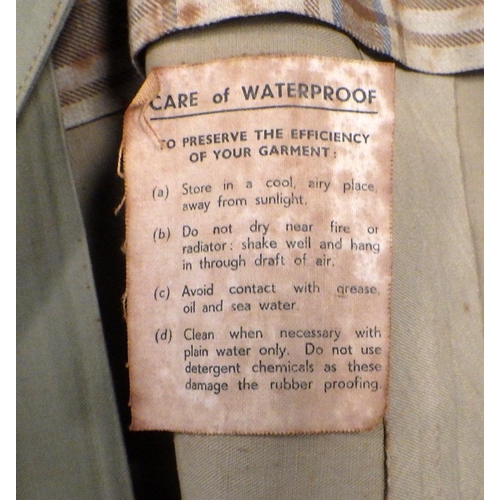 CARE of WATERPROOF
TO PRESERVE THE EFFICIENCY
OF YOUR GARMENT:
(a) Store in a cool, airy place,
away from sunlight.
(b) Do not dry near fire or
radiator: shake well and hang
in through draft of air.
(c) Avoid contact with grease,
oil and sea water.
(d) Clean when necessary with
plain water only. Do not use
detergent chemicals as these
damage the rubber proofing.